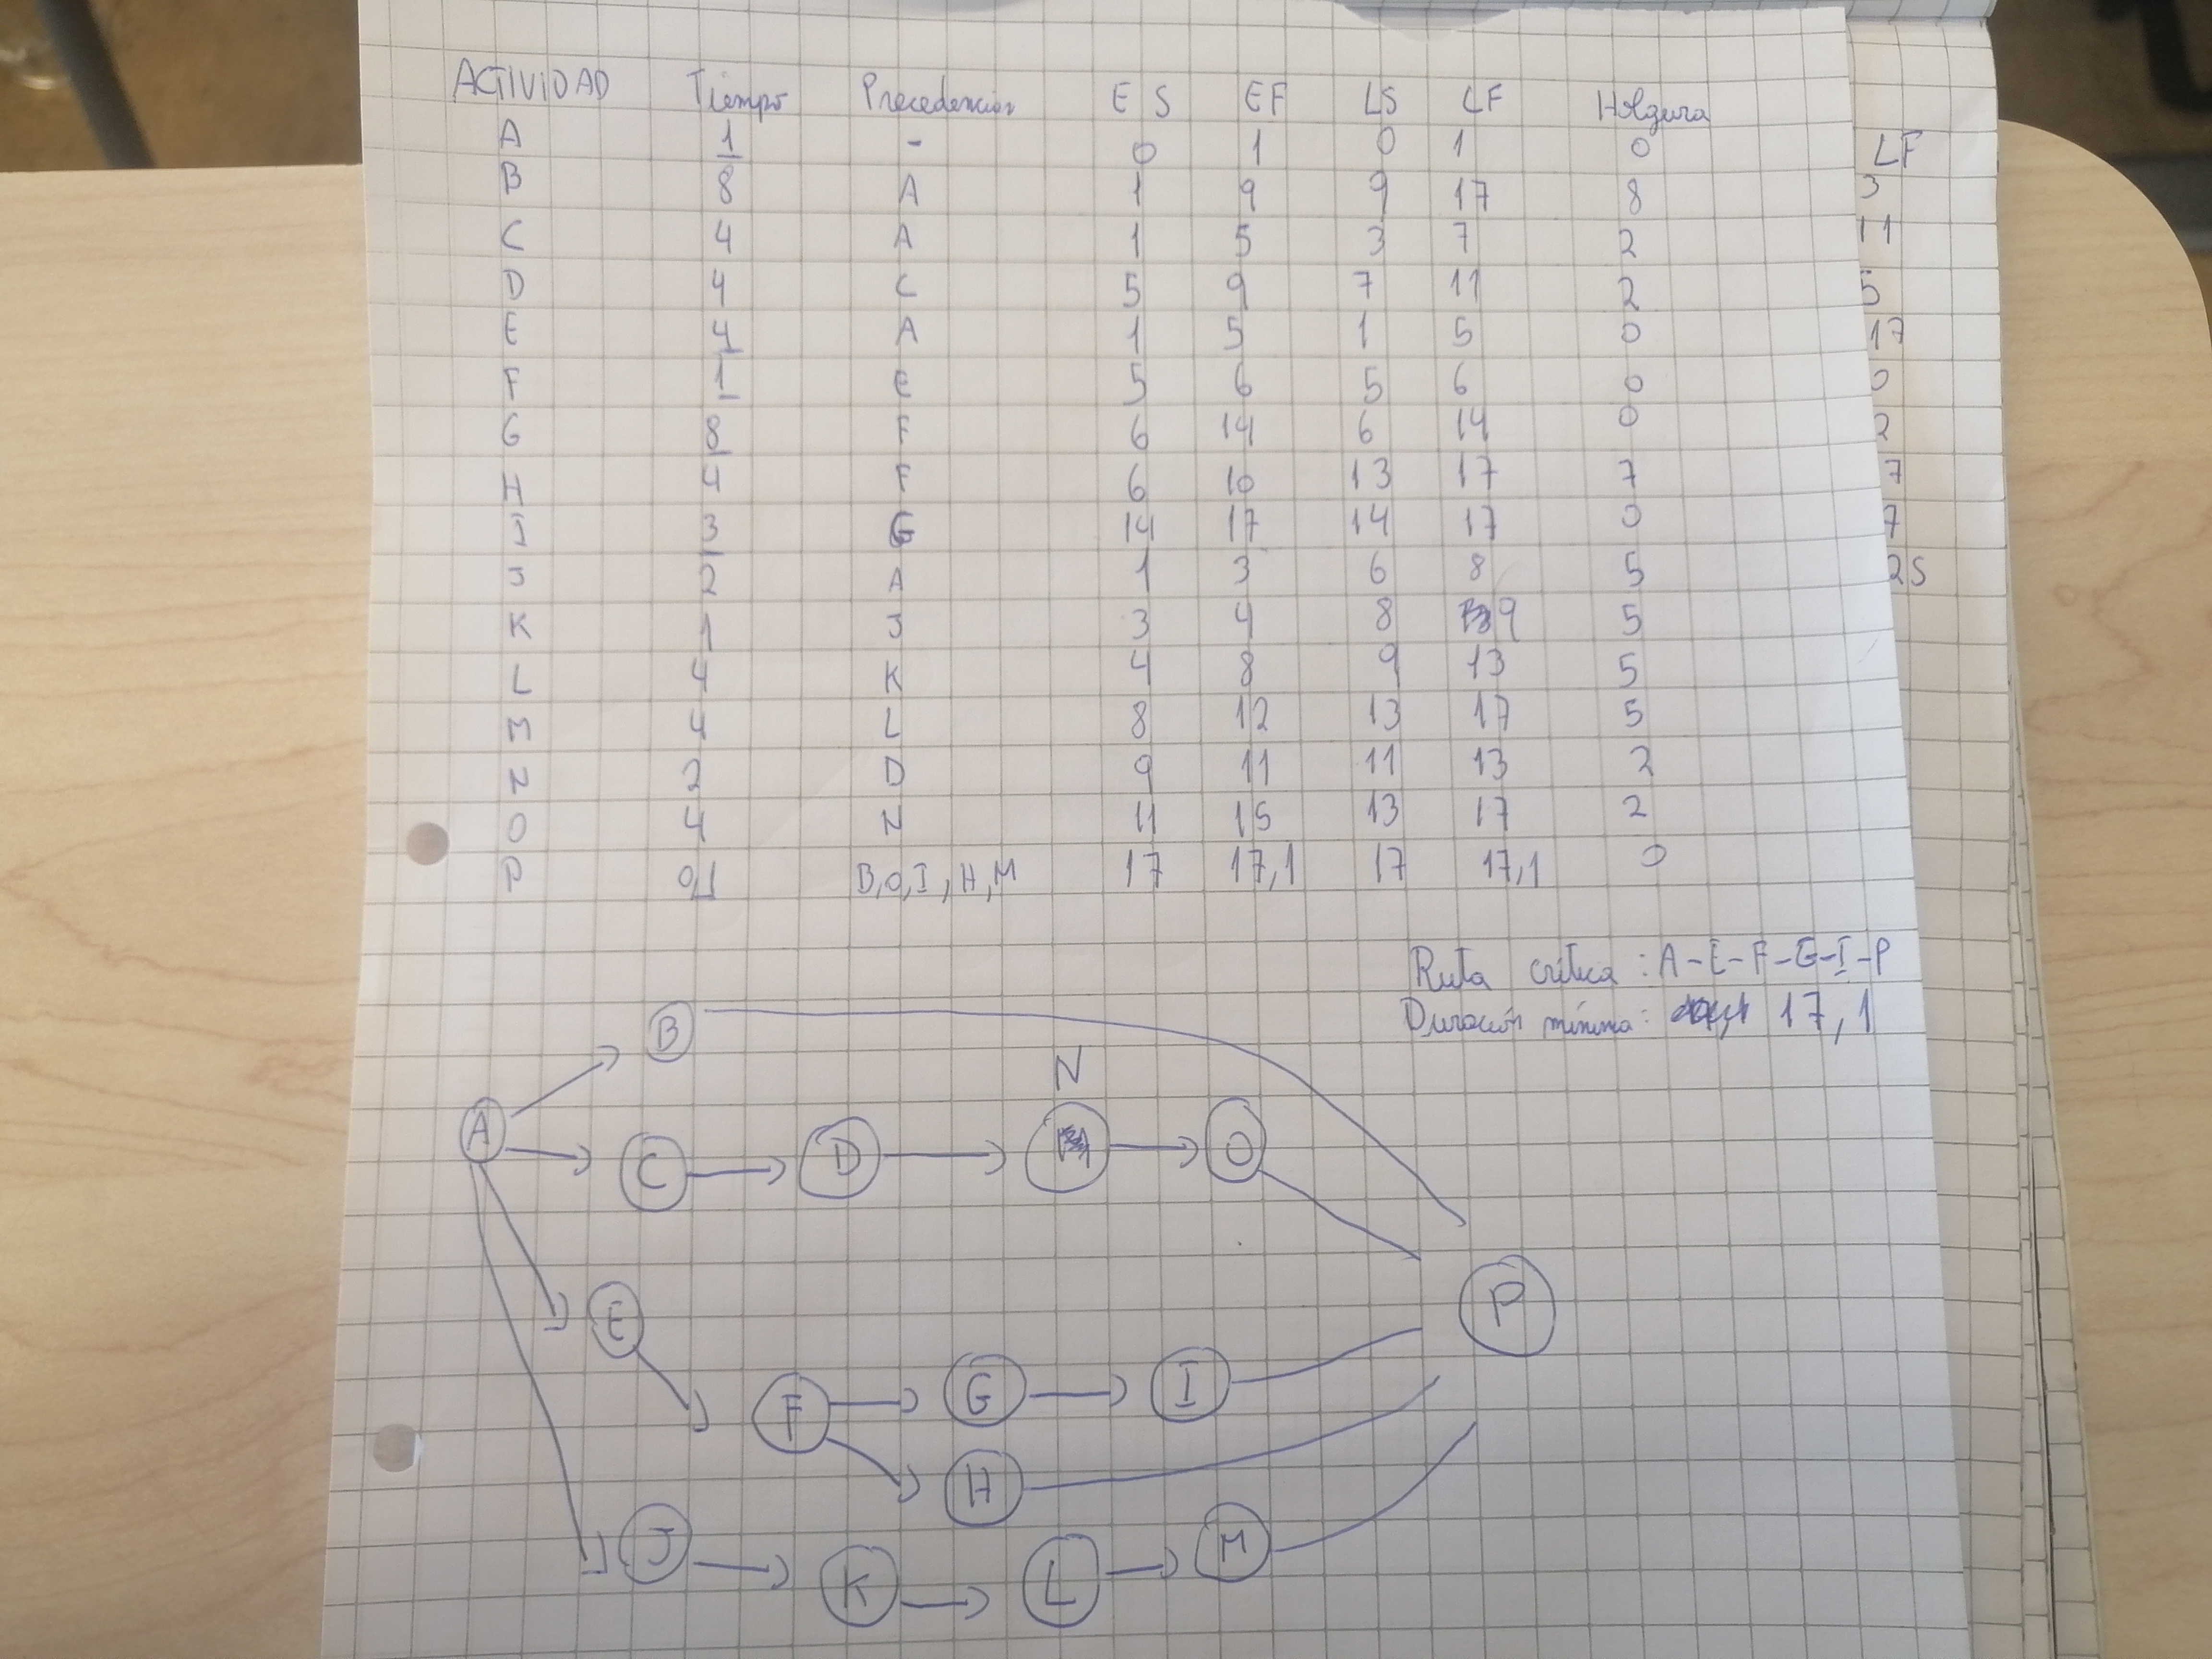 ACTIVIDAD Tiempo Precedencias ES EF LS LF Holgura
A 1 - 0 1 0 1 0 LF
B 8 A 1 9 9 17 8 3
C 4 A 1 5 3 7 2 11
D 4 C 5 9 7 11 2 5
E 4 A 1 5 1 5 0 17
F 1 E 5 6 5 6 0 0
G 8 F 6 14 6 14 0 2
H 4 F 6 10 13 17 7 7
I 3 G 14 17 14 17 0 7
J 2 A 1 3 6 8 5 2S
K 1 J 3 4 8 9 5
L 4 K 4 8 9 13 5
M 4 L 8 12 13 17 5
N 2 D 9 11 11 13 2
O 4 N 11 15 13 17 2
P 0,1 B,O,I,H,M 17 17,1 17 17,1 0
Ruta crítica: A-E-F-G-I-P
Duración mínima: 17,1
B
N
A C D O
E P
F G I
H
J K L M